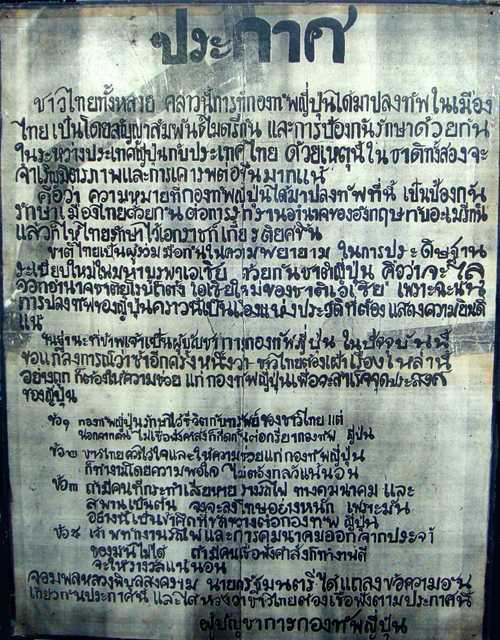 ประกาศ
ชาวไทยทั้งหลาย คราวนี้การที่กองทัพญี่ปุ่นได้มาปลงทัพในเมือง
ไทยเป็นโดยสัญญาสัมพันธ์ไมตรีกัน และการป้องกันรักษาด้วยกัน
ในระหว่างประเทศญี่ปุ่นกับประเทศไทย ด้วยเหตุนี้ในชาติทั้งสองจะ
จำเริญมิตรภาพและการเคารพต่อกันมากแน่
คือว่า ความหมายที่กองทัพญี่ปุ่นได้มาปลงทัพที่นี้ เป็นป้องกัน
รักษาเมืองไทยด้วยกัน ต่อการรุกรานอำนาจของอังกฤษกับอะเมริกัน
แล้วก็ให้ไทยรักษาไว้เอกราชก์เกียรติยศนั้น
ชาติไทยเป็นผู้ร่วมมือกันในความพยายาม ในการประดิษฐาน
ระเบียบใหม่ในมหาบูรพาเอเชีย ช่วยกันชาติญี่ปุ่น คือว่าจะไล่
ออกอำนาจชาติยุโรป เอเชียใหม่ของชาติเอเชีย เพราะฉะนั้น
การปลงทัพของญี่ปุ่นคราวนี้เป็นเรื่องแห่งประวัติที่ต้องแสดงความยินดี
แน่
ในฐานะที่ข้าพเจ้าเป็นผู้บัญชาการกองทัพญี่ปุ่น ในปัจจุบันนี้
ขอแถลงการณ์ว่าซ้ำอีกครั้งหนึ่งว่า ชาวไทยต้อง เรื่องเหล่านี้
อย่างถูก ก็ต้องให้ความช่วย แก่กองทัพญี่ปุ่นเพื่อจะสำเร็จจุดประสงค์
ของญี่ปุ่น
ข้อ ๑ กองทัพญี่ปุ่นรักษาไว้ชีวิตกับทรัพย์ของชาวไทย แต่
นอกจากนั้น ไม่เชื่อฟังคำสั่งก็ ต่อกริยากองทัพ ญี่ปุ่น
ข้อ ๒ ชาวไทยควรไว้ใจและให้ความช่วยแก่กองทัพญี่ปุ่น
ก็ทำงานโดยความพอใจ ไม่ต้องกลัวแน่นอน
ข้อ ๓ ถ้ามีคนที่กระทำเสียหาย รางรถไฟ ทางคมนาคม และ
สพานเป็นต้น จึงจะลงโทษอย่างหนัก เพราะมัน
อย่างนี้เป็นข้าศึกที่ขัดขวางต่อกองทัพ ญี่ปุ่น
ข้อ ๔ เจ้าพนักงานรถไฟและการคมนาคมออกจากประจำ
ของมันไม่ได้ ถ้ามีคนเชื่อฟังคำสั่งก็ทำงานดี
จะให้รางวัลแน่นอน
จอมพลหลวงพิบูลสงคราม นายกรัฐมนตรีได้แถลงข้อความอัน
เกี่ยวกับประกาศนี้ และได้หวังว่าชาวไทยต้องเชื่อฟังตามประกาศนี้
ผู้บัญชาการกองทัพญี่ปุ่น